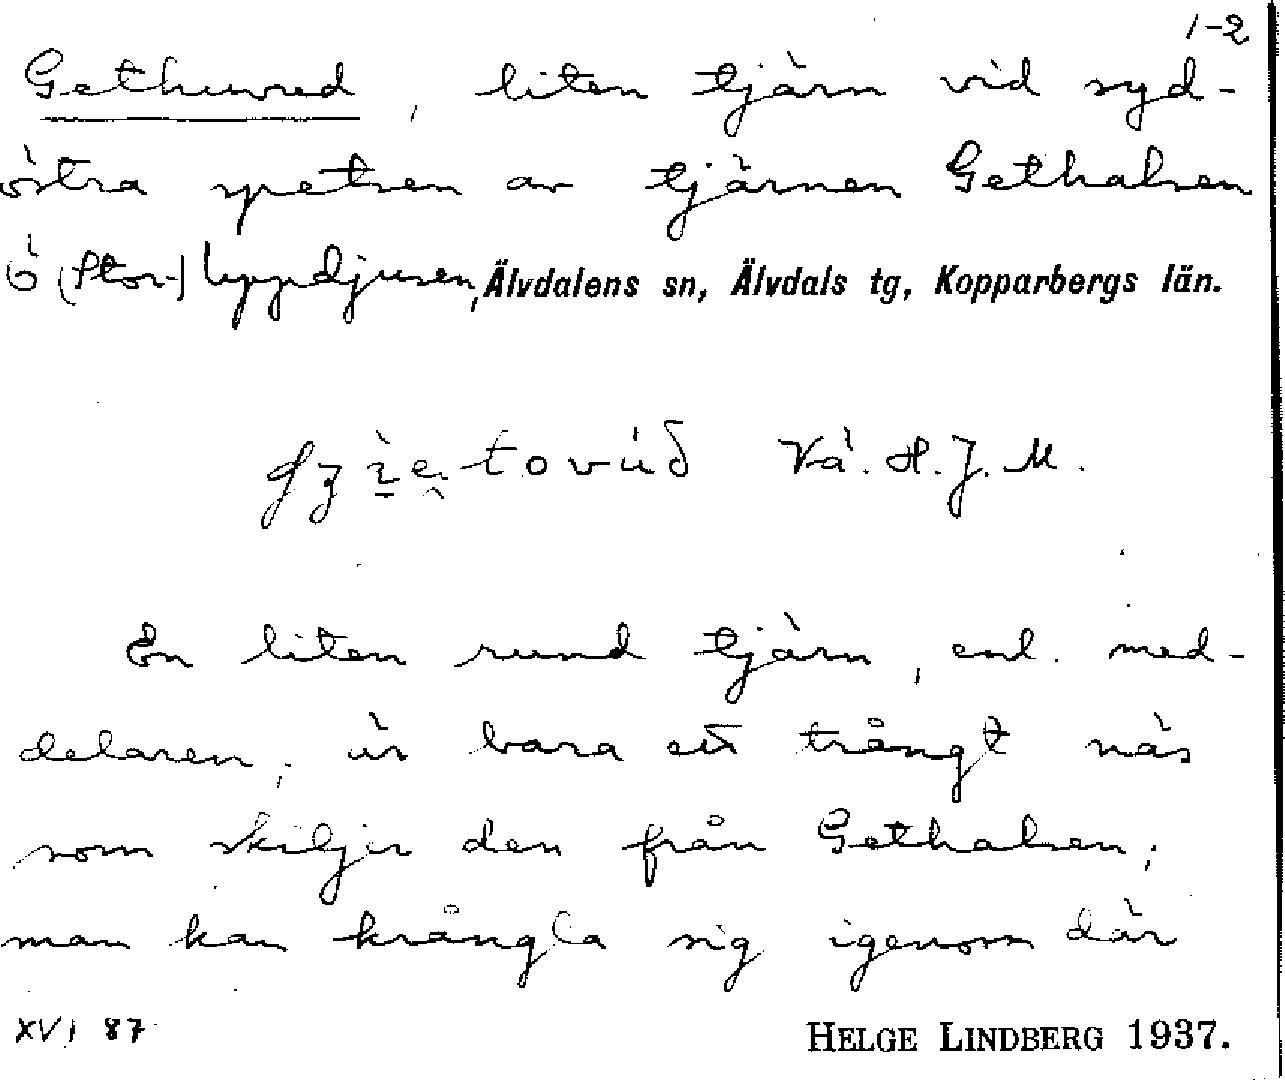 1-2
Gethuvud, liten tjärn vid syd-
östra spetsen av tjärnen Gethalsen
ö (Stor-) Uppdjusen, Älvdalens sn, Älvdals tg, Kopparbergs län.
Vå. H.J.M.
En liten rund tjärn, enl. med-
delaren, är bara ett trångt näs
som skiljer den från Gethalsen;
man kan krångla sig igenom där
XVI 87
HELGE LINDBERG 1937.